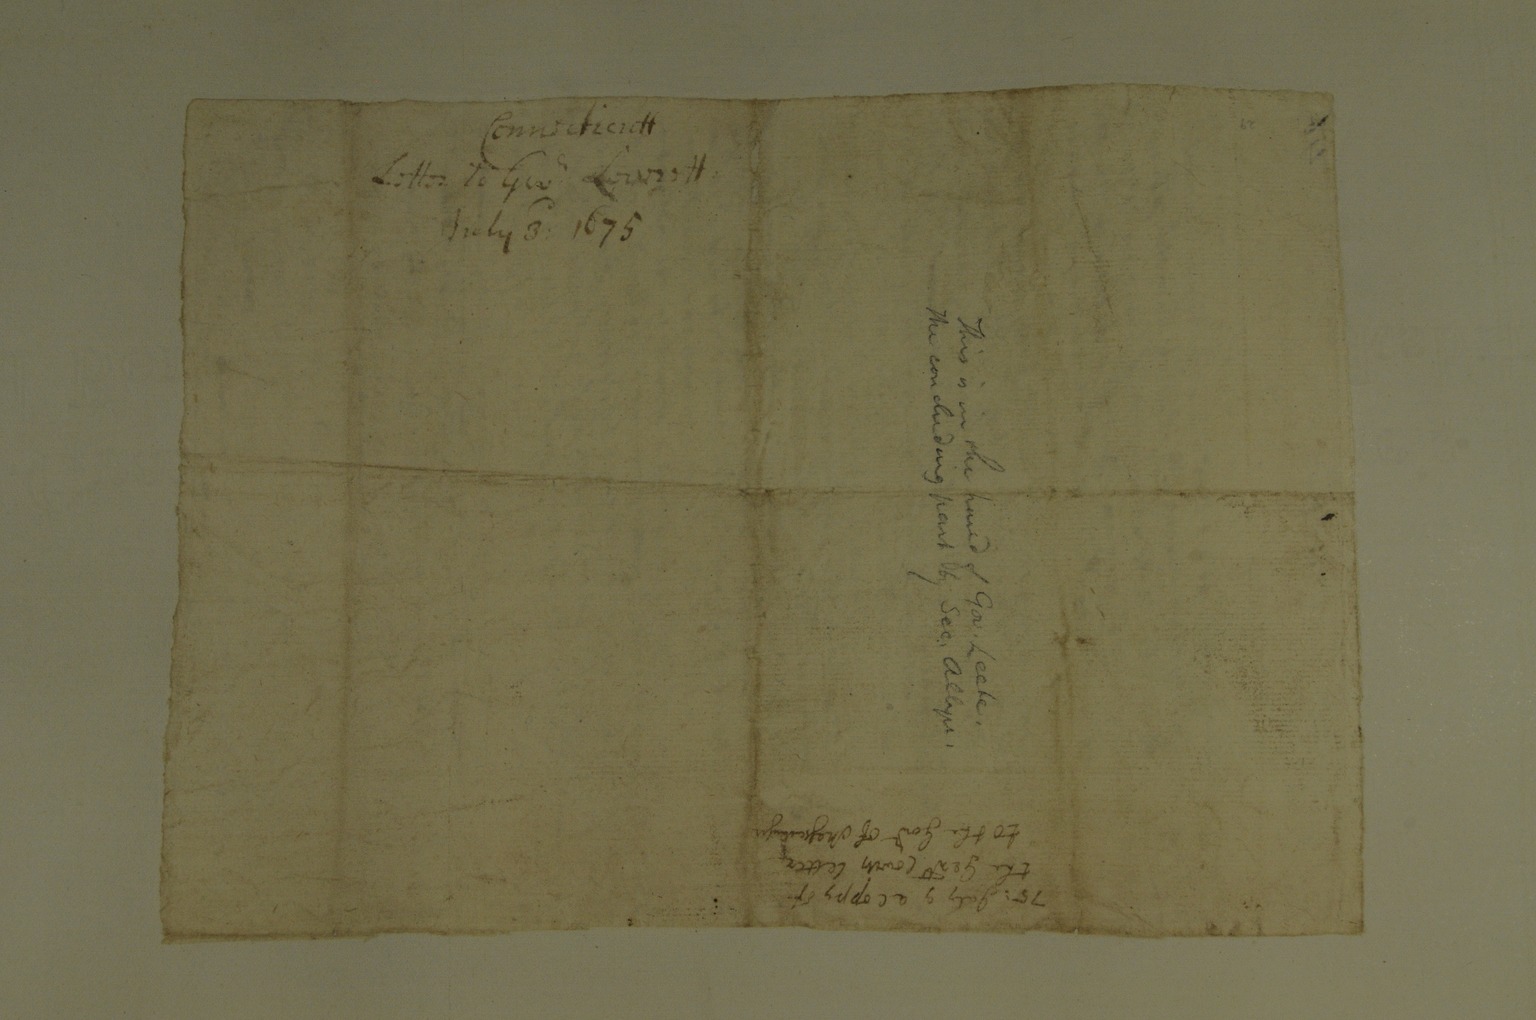 Connecticutt
Letter to Govr Leverett
July 8: 1675
This is in the hand of Gov. Leete.
The concluding part by Sec. Allyn.
75: July 9 a coppy of
the Genll Courts letter
to the Govr of